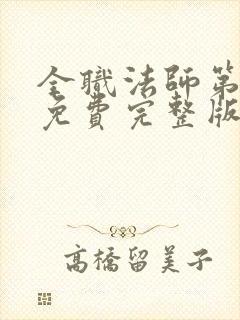 全職法師第
免費完整版
高橋留美子